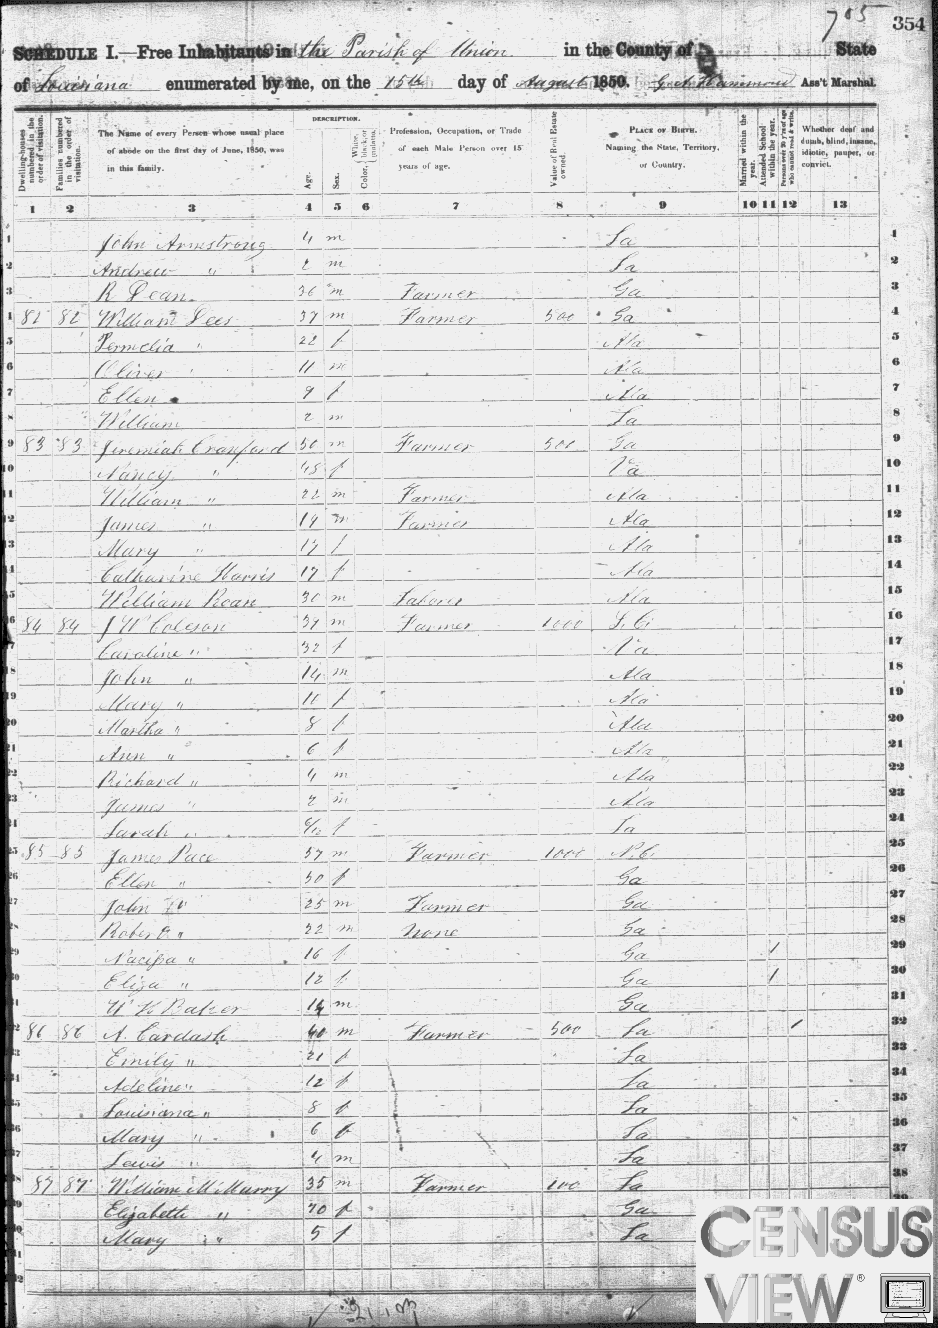 705 354
SCHEDULE I.—Free Inhabitants in the Parish of Union in the County of State
of Louisiana enumerated by me, on the 15th day of August 1850. Ass't Marshal.
DESCRIPTION.
Dwelling-houses numbered in the order of visitation. Families numbered in the order of visitation. The Name of every Person whose usual place of abode on the first day of June, 1850, was in this family. Age. Sex. Color, White, black, or mulatto. Profession, Occupation, or Trade of each Male Person over 15 years of age. Value of Real Estate owned. PLACE OF BIRTH. Naming the State, Territory, or Country. Married within the year. Attended School within the year. Persons over 20 y'rs of age who cannot read & write. Whether deaf and dumb, blind, insane, idiotic, pauper, or convict.
1 2 3 4 5 6 7 8 9 10 11 12 13
1 John Armstrong 4 m La 1
2 Andrew " 2 m La 2
3 R Dean 36 m Farmer Ga 3
4 82 82 William Lees 37 m Farmer 500 Ga 4
5 Permelia " 22 f Ala 5
6 Oliver " 11 m Ala 6
7 Ellen 9 f Ala 7
8 William 2 m La 8
9 83 83 Jeremiah Crawford 50 m Farmer 500 Ga 9
10 Nancy " 45 f Va 10
11 William " 22 m Farmer Ala 11
12 James " 19 m Farmer Ala 12
13 Mary " 17 f Ala 13
14 Catharine Harris 17 f Ala 14
15 William 30 m Laborer Ala 15
16 84 84 J W Coleson 37 m Farmer 1000 S.C. 16
17 Caroline " 32 f Va 17
18 John " 14 m Ala 18
19 Mary " 10 f Ala 19
20 Martha " 8 f Ala 20
21 Ann " 6 f Ala 21
22 Richard " 4 m Ala 22
23 James " 2 m Ala 23
24 Sarah " 6/12 f La 24
25 85 85 James Pace 57 m Farmer 1000 N.C. 25
26 Ellen " 50 f Ga 26
27 John " 25 m Farmer Ga 27
28 Robert " 22 m None Ga 28
29 " 16 f Ga / 29
30 Eliza " 12 f Ga / 30
31 W K Baker 14 m Ga 31
32 86 86 A. Cardash 40 m Farmer 500 La / 32
33 Emily " 21 f La 33
34 Adeline " 12 f La 34
35 Louisiana " 8 f La 35
36 Mary " 6 f La 36
37 Lewis " 4 m La 37
38 87 87 William McMurry 35 m Farmer 100 La 38
39 Elizabeth " 70 f Ga 39
40 Mary " 5 f La
CENSUS
VIEW ®